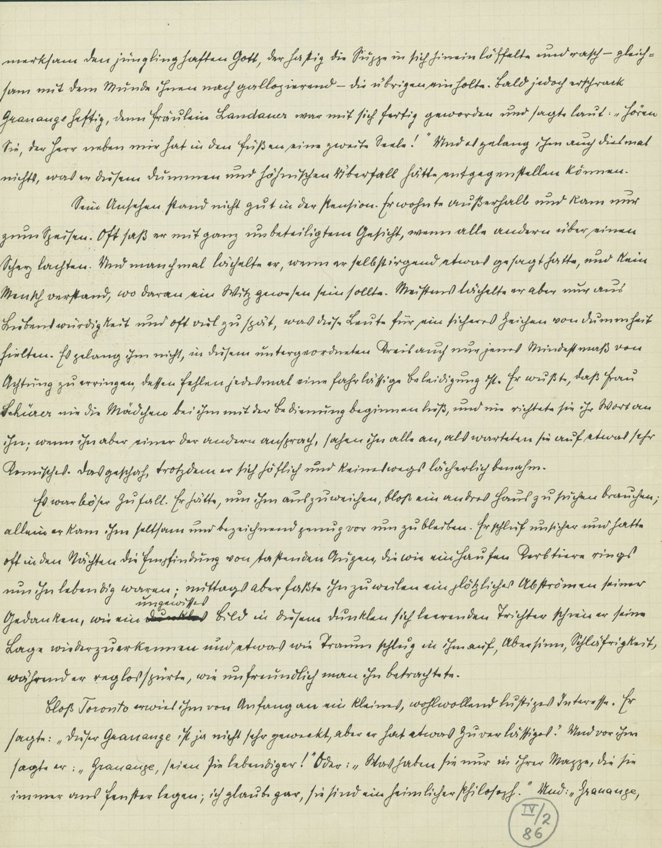 merksam den jünglinghaften Gott, der hastig die Suppe in sich hineinlöffelte und rasch – gleich=
sam mit dem Munde ihnen nach gallopierend – die übrigen einholte. Bald jedoch erschrak
Granange heftig, denn Fräulein Landauer war mit sich fertig geworden und sagte laut: „Hören
Sie, der Herr neben mir hat in den Füßen eine zweite Seele!" Und es gelang ihm auch diesmal
nichts, was er diesem dummen und höhnischen Überfall hätte entgegenstellen können.
Sein Ansehen stand nicht gut in der Pension. Er wohnte außerhalb und kam nur
zum Speisen. Oft saß er mit ganz unbeteiligtem Gesicht, wenn alle andern über einen
Scherz lachten. Und manchmal lächelte er, wenn er selbst irgend etwas gesagt hatte, und kein
Mensch verstand, wo daran ein Witz gewesen sein sollte. Meistens lächelte er aber nur aus
Liebenswürdigkeit und oft viel zu spät, was diese Leute für ein sicheres Zeichen von Dummheit
hielten. Es gelang ihm nicht, in diesem untergeordneten Kreis auch nur jenes Mindestmaß von
Achtung zu erringen, dessen Fehlen jedesmal eine fahrlässige Beleidigung ist. Er wußte, daß Frau
nie die Mädchen bei ihm mit der Bedienung beginnen ließ, und nie richtete sie ihr Wort an
ihn; wenn ihn aber einer der andern ansprach, sahen ihn alle an, als warteten sie auf etwas sehr
Komisches. Das geschah, trotzdem er sich höflich und keineswegs lächerlich benahm.
Es war böser Zufall. Er hätte, um ihm auszuweichen, bloß ein andres Haus zu suchen brauchen;
allein er kam ihm seltsam und bezeichnend genug vor um zu bleiben. Er schlief unsicher und hatte
oft in den Nächten die Empfindung von tastenden Augen, die wie ein Haufen Kerbtiere rings
um ihn lebendig waren; mittags aber faßte ihn zuweilen ein plötzliches Abströmen seiner
ungewisses
Gedanken, wie ein Bild in diesem dunklen sich leerenden Trichter schien er seine
Lage wiederzuerkennen und etwas wie Traum schlug in ihm auf, Abersinn, Schläfrigkeit,
während er reglos spürte, wie unfreundlich man ihn betrachtete.
Bloß Toronto erwies ihm von Anfang an ein kleines, wohlwollend lustiges Interesse. Er
sagte: „Dieser Granange ist ja nicht sehr geweckt, aber er hat etwas Zuverlässiges." Und vor ihm
sagte er: „Granange, seien Sie lebendiger!" Oder: „Was haben Sie nur in Ihrer Mappe, die sie
immer ans Fenster legen; ich glaube gar, sie sind ein heimlicher Philosoph." Und: „Granange,
IV/2
86